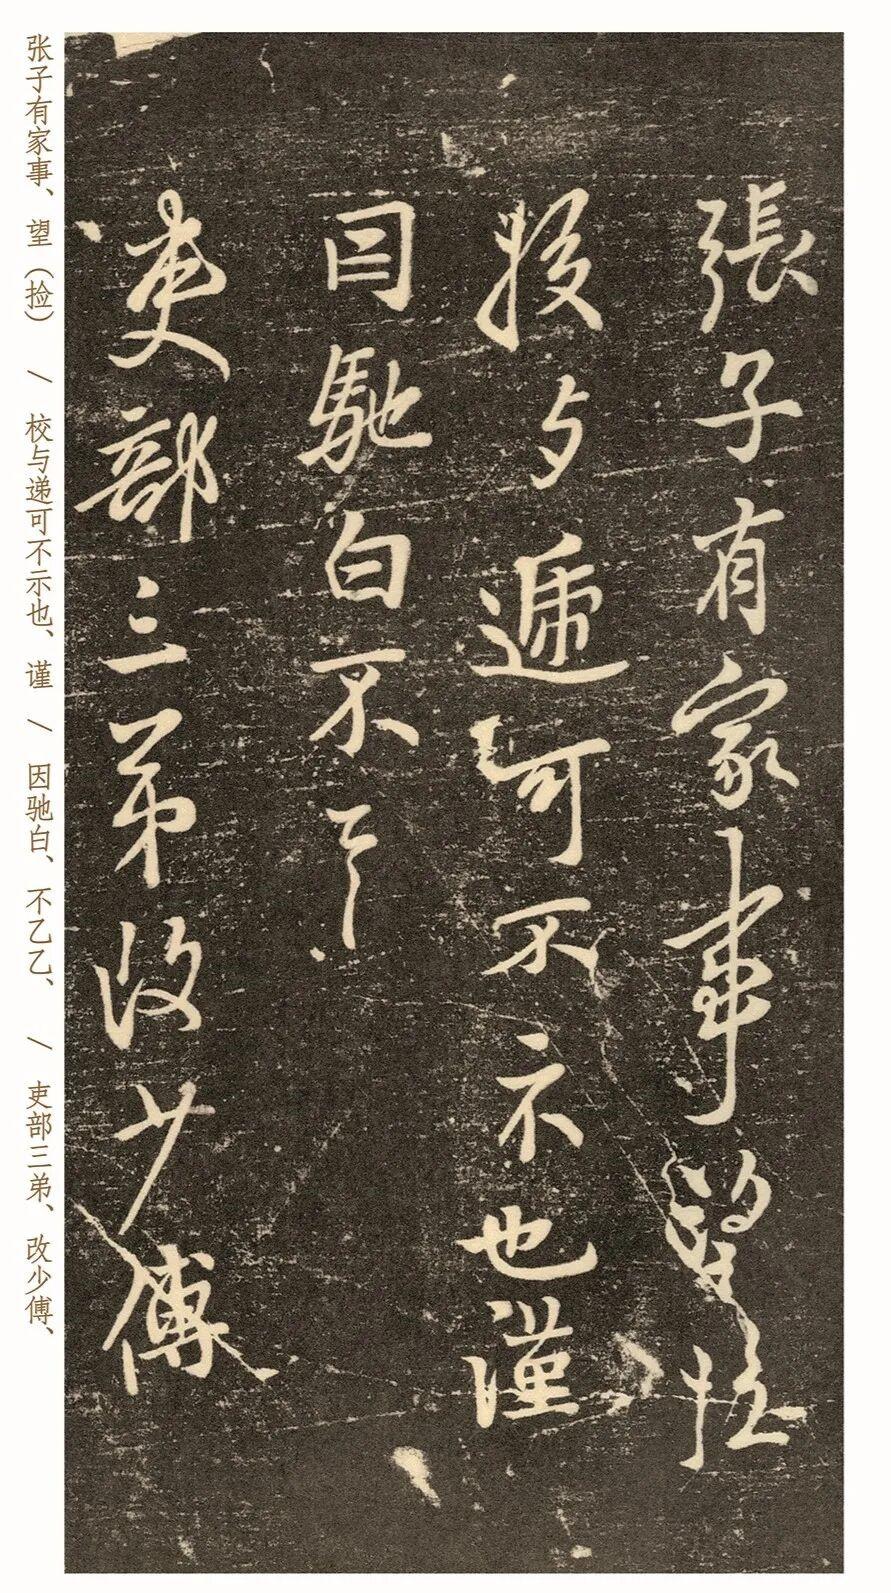 張子有家事望
與遞可不示也謹
因馳白不
吏部三弟改少傅
张子有家事、望（捡） / 校与递可不示也、谨 / 因驰白、不乙乙、 / 吏部三弟、改少傅、